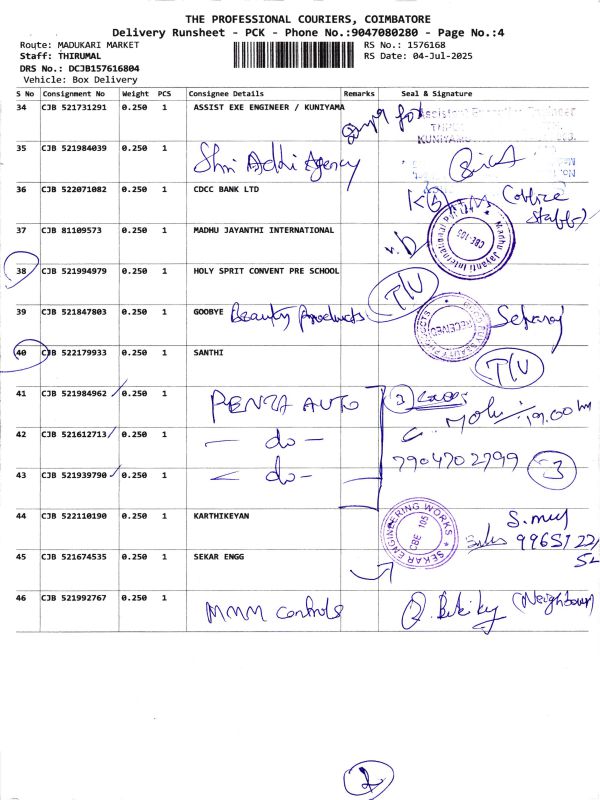 THE PROFESSIONAL COURIERS, COIMBATORE
Delivery Runsheet - PCK - Phone No.:9047080280 - Page No.:4
Route: MADUKARI MARKET
RS No.: 1576168
Staff: THIRUMAL
RS Date: 04-Jul-2025
DRS No.: DCJB157616804
Vehicle: Box Delivery
S No Consignment No Weight PCS Consignee Details Remarks Seal & Signature
34 CJB 521731291 0.250 1 ASSIST EXE ENGINEER / KUNIYAMA
Assistant Executive Engineer
35 CJB 521984039 0.250 1 Shri Addhi Agency
36 CJB 522071082 0.250 1 CDCC BANK LTD
(office staff)
37 CJB 81109573 0.250 1 MADHU JAYANTHI INTERNATIONAL
Madhu Jayanti International
CBE-105
38 CJB 521994979 0.250 1 HOLY SPRIT CONVENT PRE SCHOOL T/U
39 CJB 521847803 0.250 1 GOOBYE Beauty Products
RECEIVED
40 CJB 522179933 0.250 1 SANTHI T/U
41 CJB 521984962 0.250 1 PENTA AUTO
42 CJB 521612713 0.250 1 - do -
7904702799 3
43 CJB 521939790 0.250 1 - do -
44 CJB 522110190 0.250 1 KARTHIKEYAN
SEKAR ENGINEERING WORKS
CBE 105
45 CJB 521674535 0.250 1 SEKAR ENGG
46 CJB 521992767 0.250 1 MMM controls (Neighbour)
2